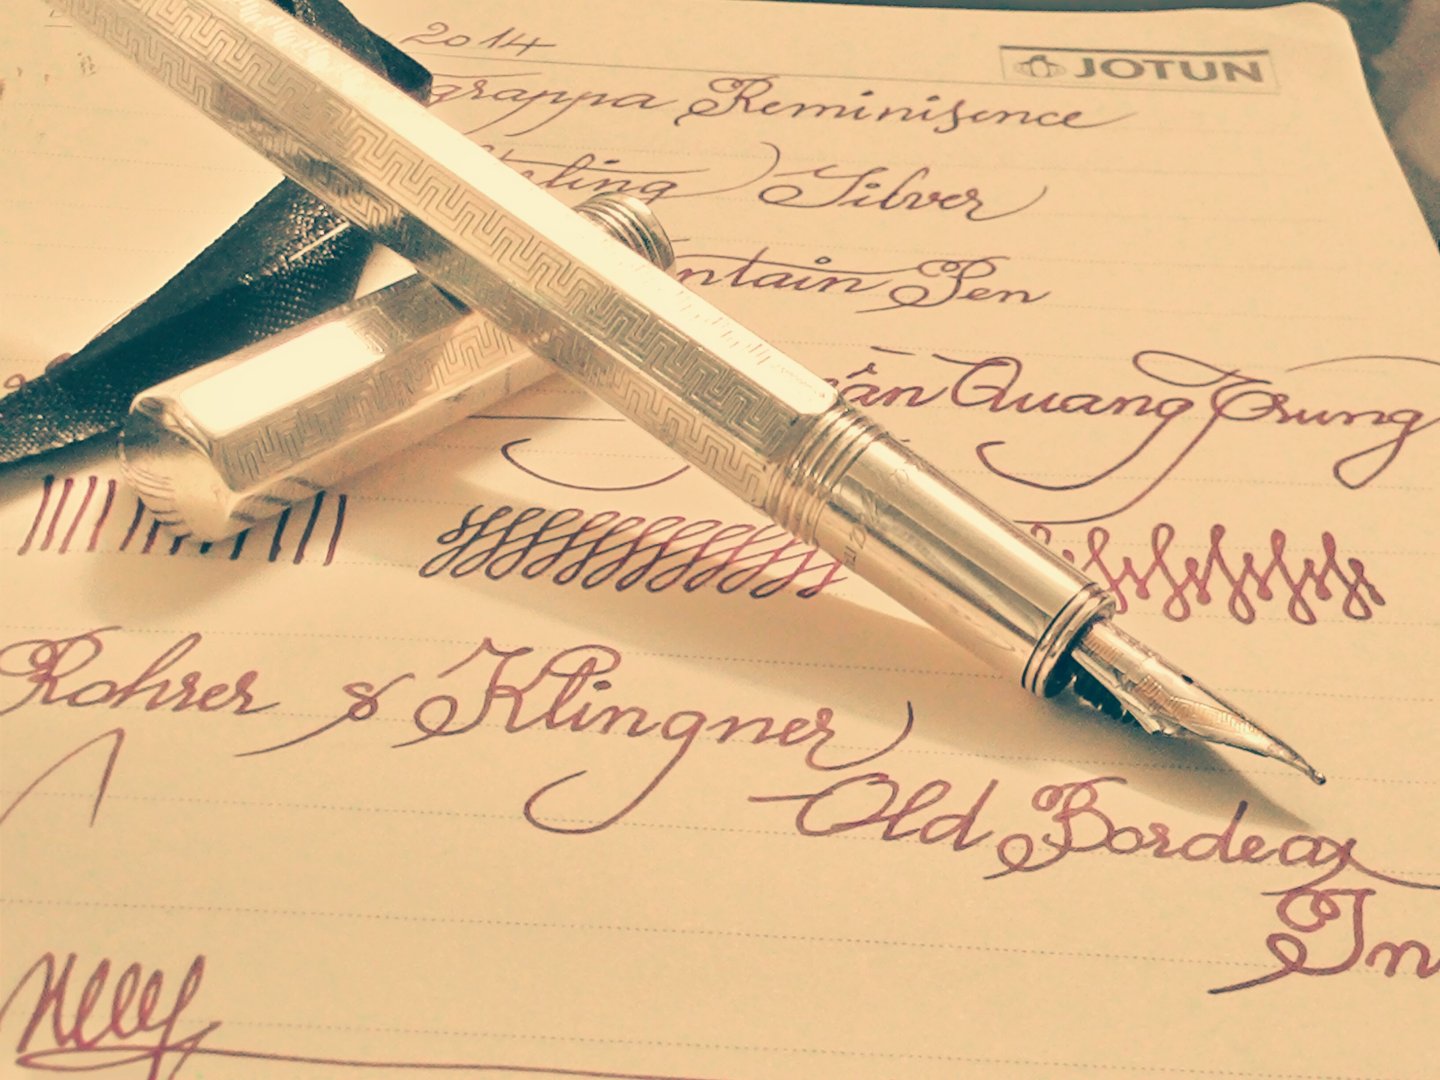 2014
JOTUN
grappa Reminisence
teling Silver
ntain Pen
ần Quang Trung
Rohrer & Klingner
Old Bordeax
In